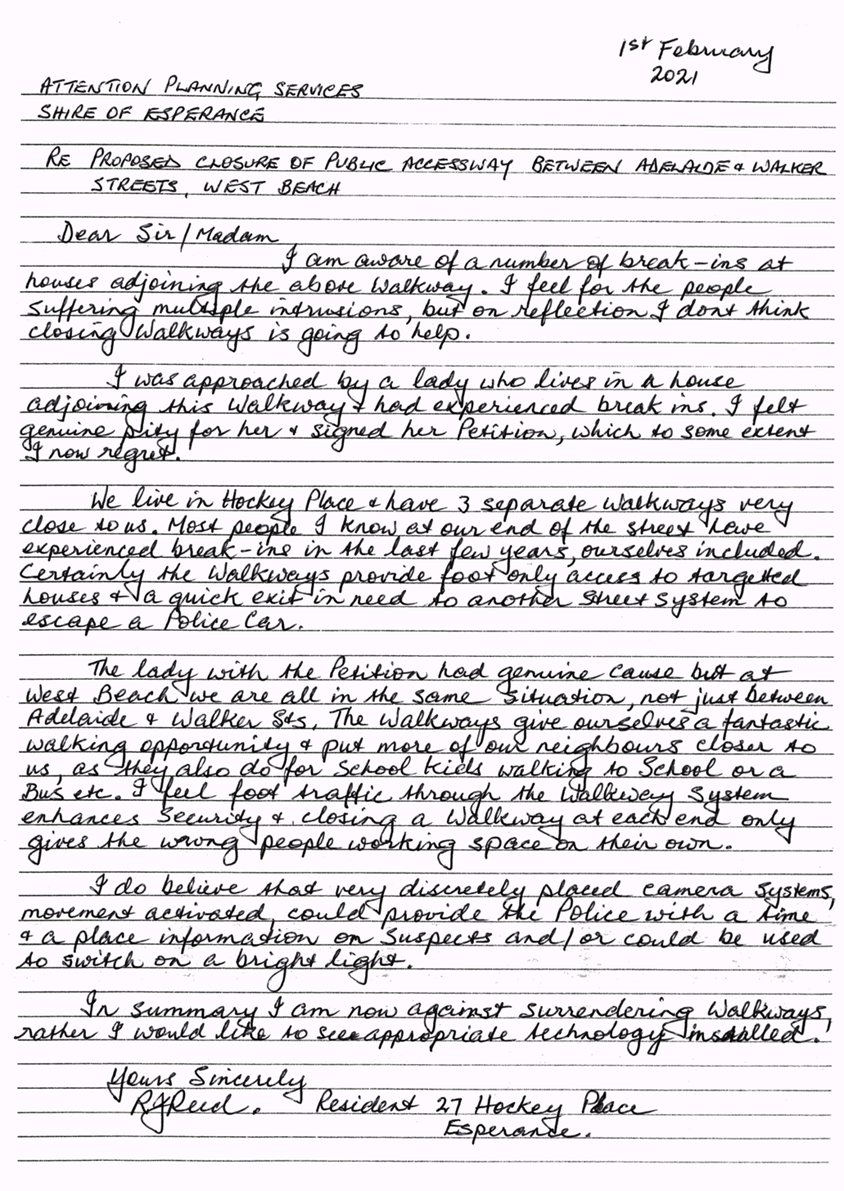 1st February
2021
ATTENTION PLANNING SERVICES
SHIRE OF ESPERANCE
RE PROPOSED CLOSURE OF PUBLIC ACCESSWAY BETWEEN ADELAIDE & WALKER
STREETS, WEST BEACH
Dear Sir/Madam
I am aware of a number of break-ins at
houses adjoining the above Walkway. I feel for the people
suffering multiple intrusions, but on reflection I dont think
closing Walkways is going to help.
I was approached by a lady who lives in a house
adjoining this Walkway & had experienced break ins. I felt
genuine pity for her & signed her Petition, which to some extent
I now regret.
We live in Hockey Place & have 3 separate Walkways very
close to us. Most people I know at our end of the street have
experienced break-ins in the last few years, ourselves included.
Certainly the Walkways provide foot only access to targetted
houses & a quick exit in need to another Street System to
escape a Police Car.
The lady with the Petition had genuine cause but at
West Beach we are all in the same situation, not just between
Adelaide & Walker Sts. The Walkways give ourselves a fantastic
walking opportunity & put more of our neighbours closer to
us, as they also do for School kids walking to School or a
Bus etc. I feel foot traffic through the Walkway System
enhances Security & closing a Walkway at each end only
gives the wrong people working space on their own.
I do believe that very discretely placed camera systems,
movement activated, could provide the Police with a time
& a place information on Suspects and/or could be used
to switch on a bright light.
In summary I am now against surrendering Walkways,
rather I would like to see appropriate technology installed.
Yours Sincerely
RJReid. Resident 27 Hockey Place
Esperance.